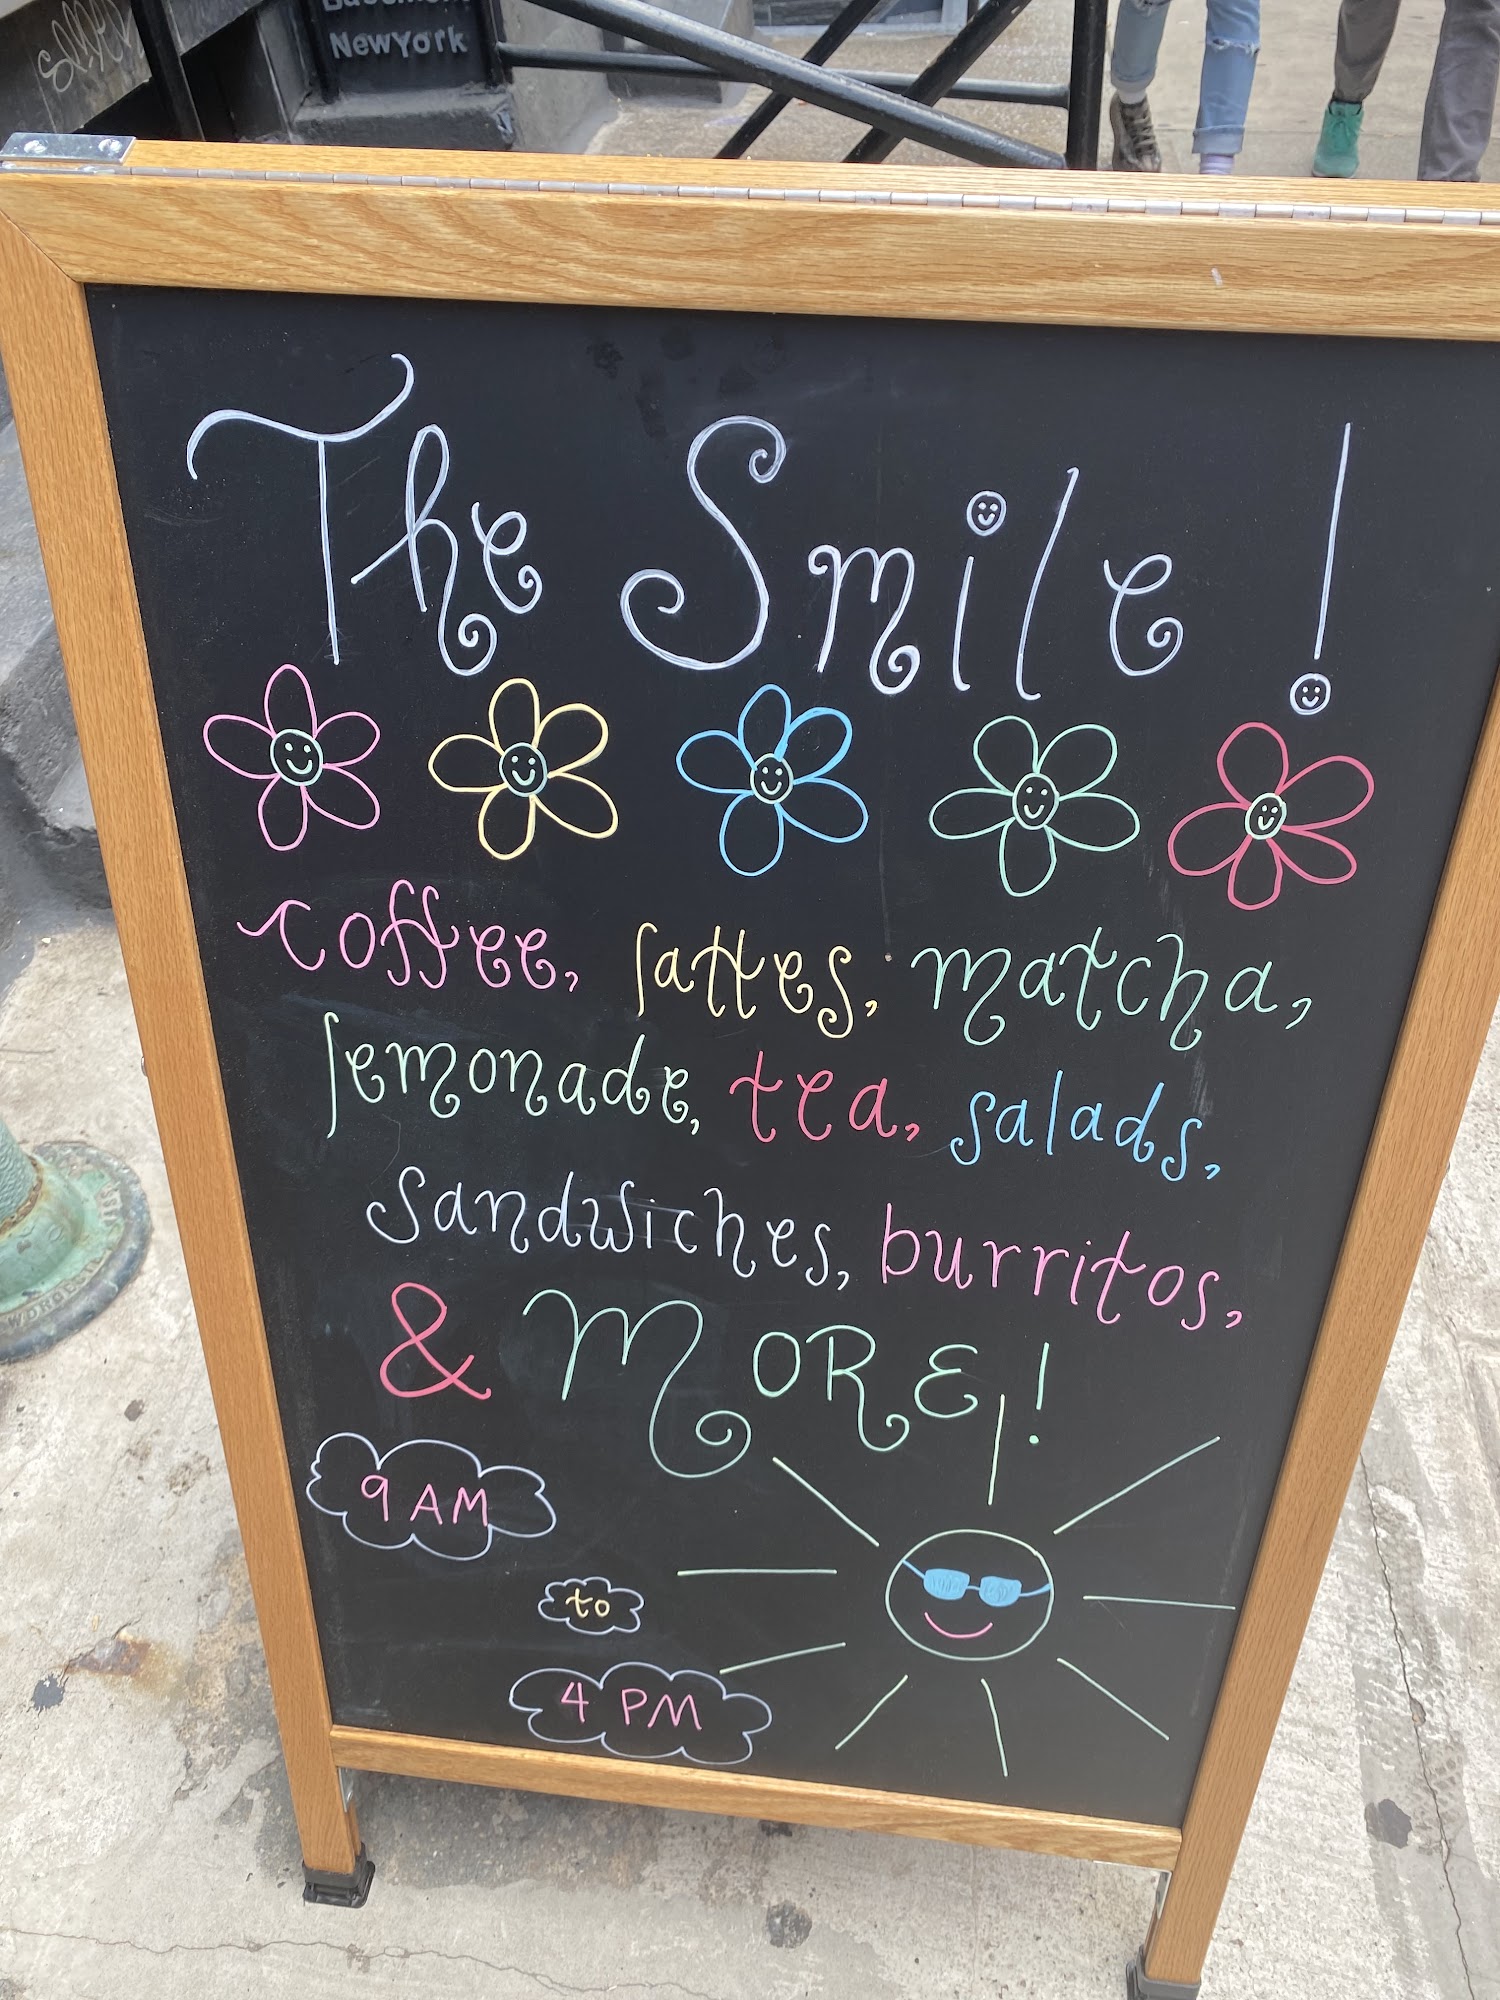 Basement
NewYork
The Smile!
coffee, lattes, matcha,
lemonade, tea, salads,
sandwiches, burritos,
& MORE!
9 AM
to
4 PM